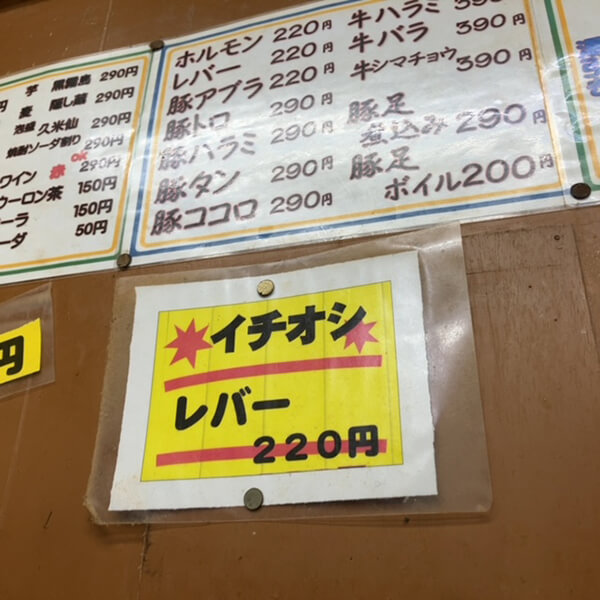 芋 黒霧島 290円
麦 隠し蔵 290円
泡盛 久米仙 290円
焼酎ソーダ割り 290円
ワイン 赤 OK 290円
ウーロン茶 150円
ーラ 150円
ーダ 50円
ホルモン 220円
レバー 220円
豚アブラ 220円
豚トロ 290円
豚ハラミ 290円
豚タン 290円
豚ココロ 290円
牛ハラミ 390円
牛バラ 390円
牛シマチョウ 390円
豚足
煮込み 290円
豚足
ボイル 200円
円
イチオシ
レバー
220円